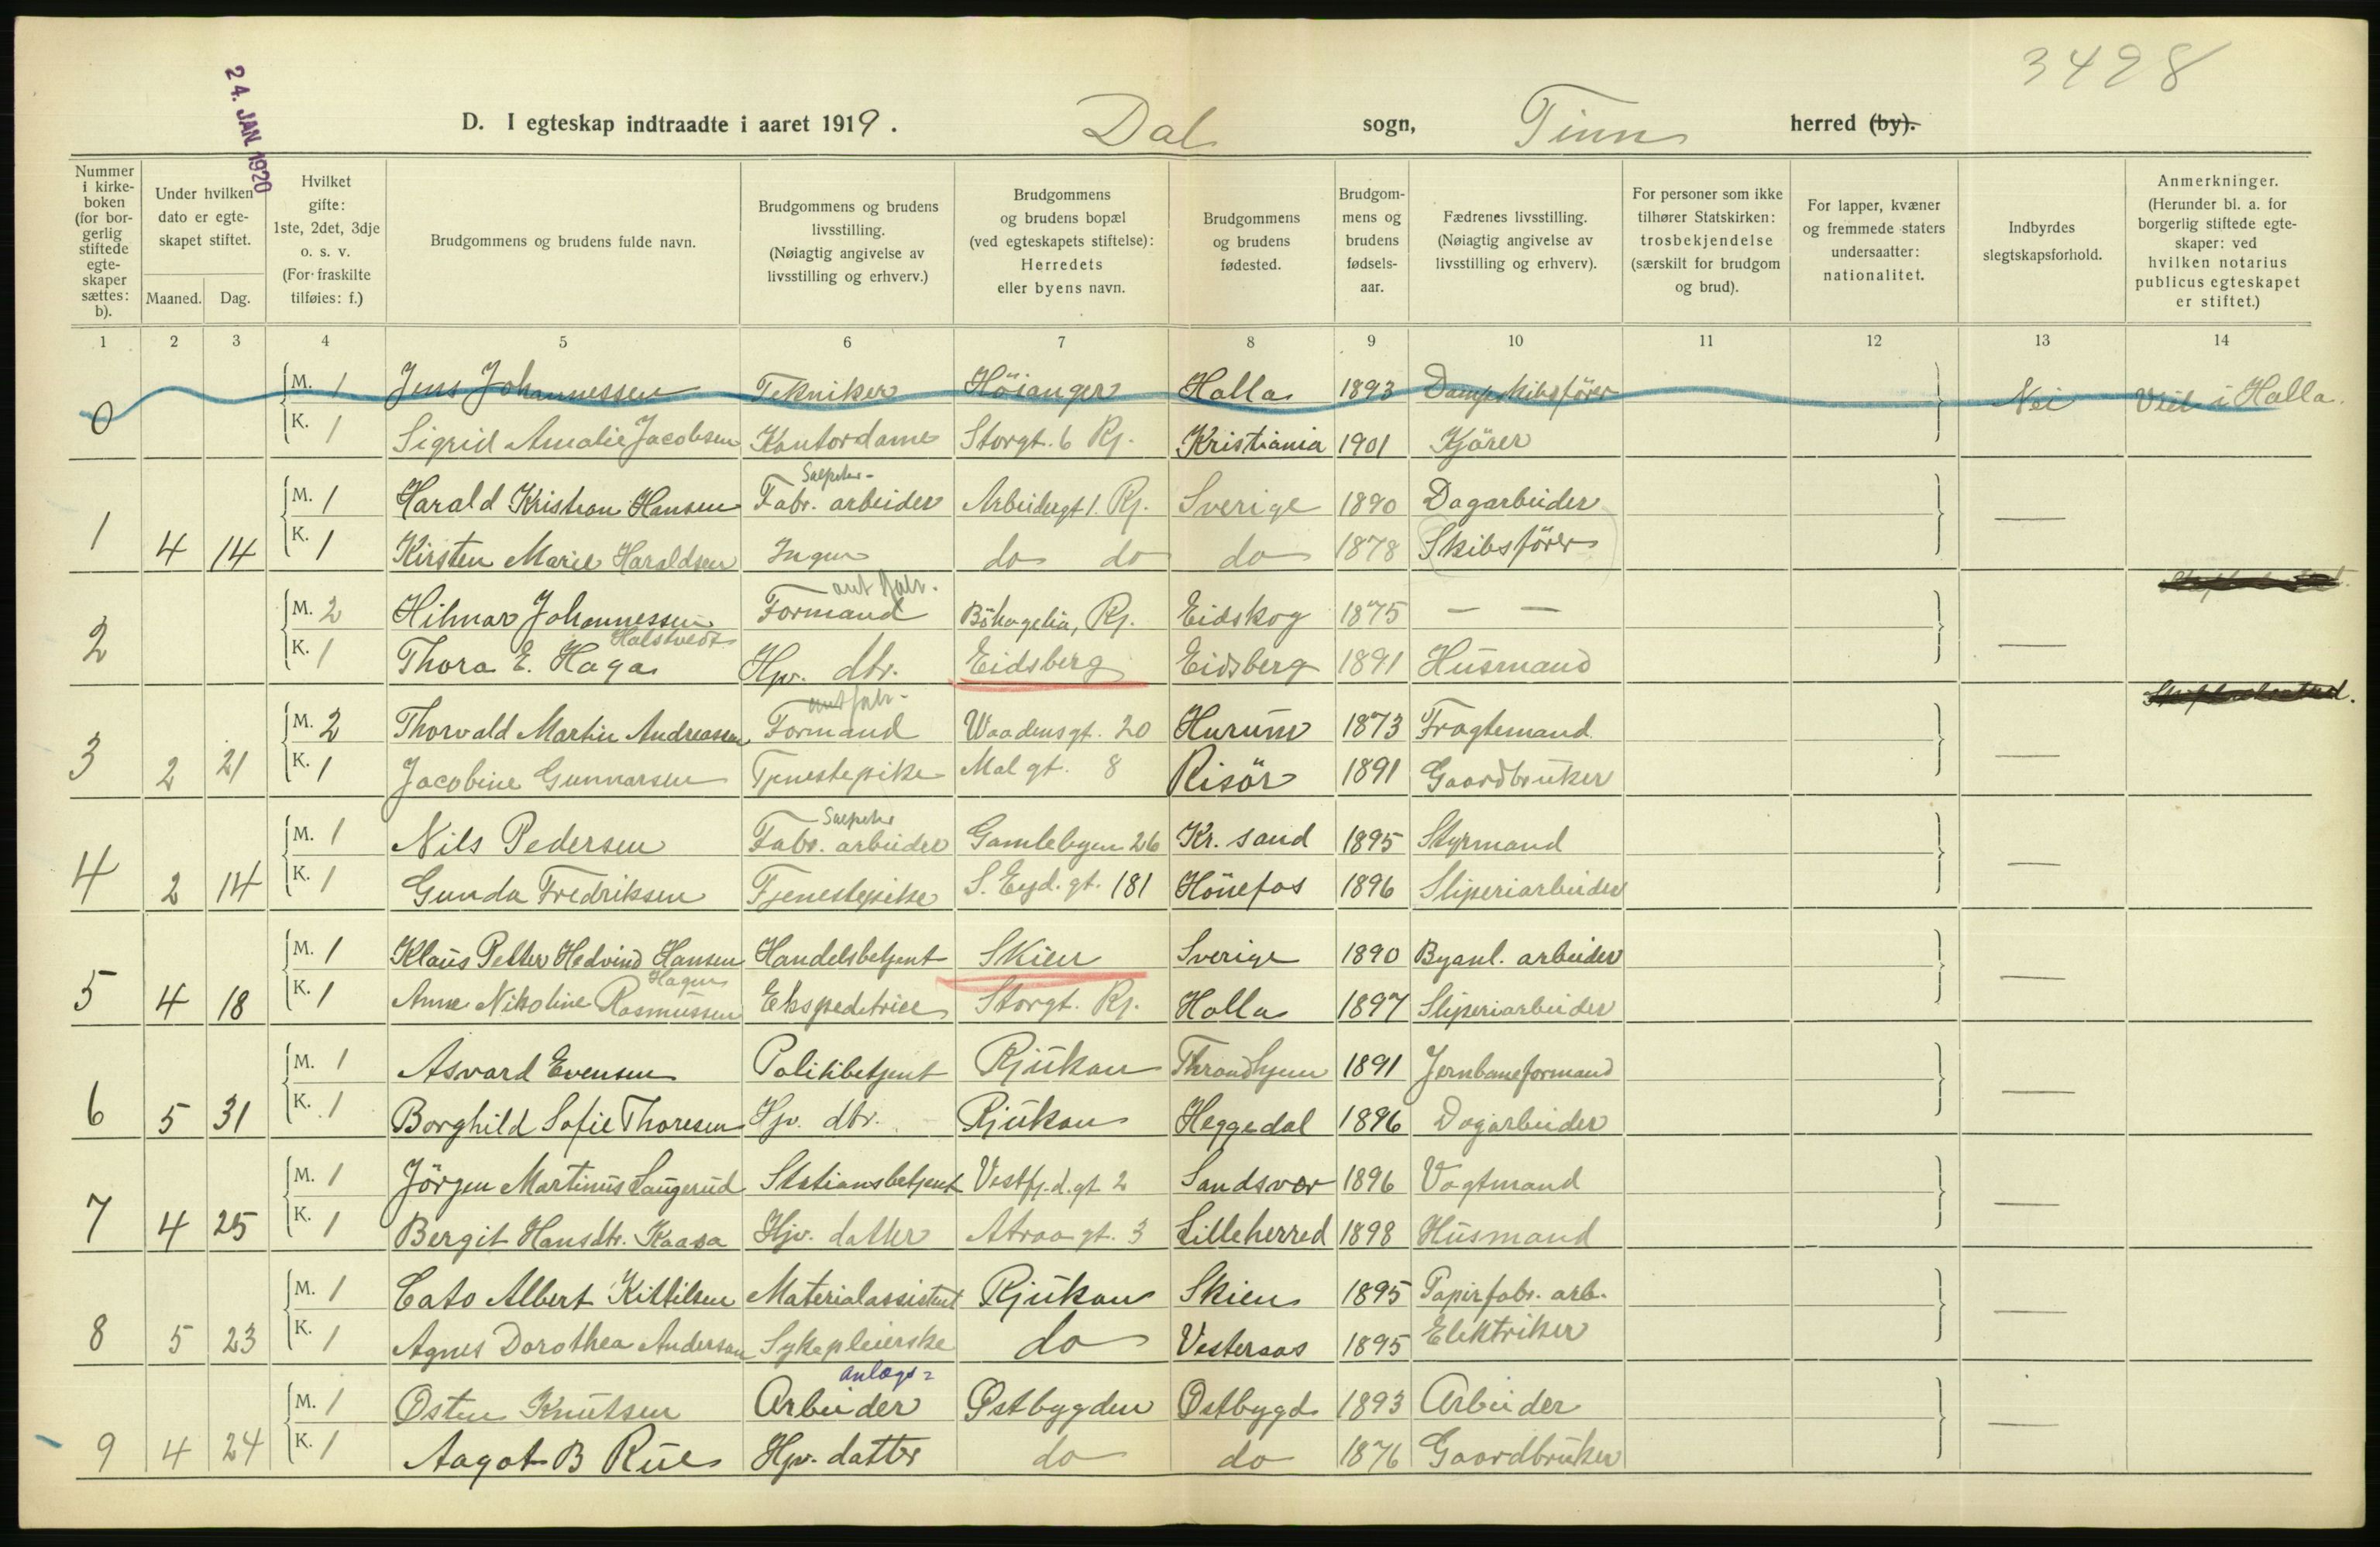 3498
24. JAN 1920
D. I egteskap indtraadte i aaret 1919. Dal sogn, Tinn herred (by).
Nummer i kirke-boken (for bor-gerlig stiftede egte-skaper sættes: b).
Under hvilken dato er egte-skapet stiftet.
Maaned. Dag.
Hvilket gifte: 1ste, 2det, 3dje o. s. v. (For fraskilte tilføies: f.)
Brudgommens og brudens fulde navn.
Brudgommens og brudens livsstilling. (Nøiagtig angivelse av livsstilling og erhverv.)
Brudgommens og brudens bopæl (ved egteskapets stiftelse): Herredets eller byens navn.
Brudgommens og brudens fødested.
Brudgom-mens og brudens fødsels-aar.
Fædrenes livsstilling. (Nøiagtig angivelse av livsstilling og erhverv).
For personer som ikke tilhører Statskirken: trosbekjendelse (særskilt for brudgom og brud).
For lapper, kvæner og fremmede staters undersaatter: nationalitet.
Indbyrdes slegtskapsforhold.
Anmerkninger. (Herunder bl. a. for borgerlig stiftede egte-skaper: ved hvilken notarius publicus egteskapet er stiftet.)
1 2 3 4 5 6 7 8 9 10 11 12 13 14
0 M. 1 Jens Johannessen Tekniker Höianger Holla 1893 Dampskibsfører Nei Viet i Holla.
K. 1 Sigrid Amalie Jacobsen Kontordame Storgt. 6 Rj. Kristiania 1901 Kjörer
Salpeter-
1 4 14 M. 1 Harald Kristian Hansen Fabr. arbeider Arbeidergt 1. Rj. Sverige 1890 Dagarbeider —
K. 1 Kirsten Marie Haraldsen Ingen do do do 1878 Skibsfører
2 M. 2 Hilmar Johannessen Formand Böhagelia, Rj. Eidskog 1875 — — —
Halstvedt
K. 1 Thora E. Haga Hjv. dtr. Eidsberg Eidsberg 1891 Husmand
3 2 21 M. 2 Thorvald Martin Andreassen Formand Waadensgt. 20 Hurum 1873 Fragtemand —
K. 1 Jacobine Gunnarsen Tjenestepike Mælgt. 8 Risör 1891 Gaardbruker
Salpeter
4 2 14 M. 1 Nils Pedersen Fabr. arbeider Gamlebyen 26 Kr. sand 1895 Styrmand —
K. 1 Gunda Fredriksen Tjenestepike S. Eyd. gt. 181 Hönefos 1896 Sliperiarbeider
5 4 18 M. 1 Klaus Petter Hedvind Hansen Handelsbetjent Skien Sverige 1890 Byanl. arbeider —
Hagen
K. 1 Anne Nikoline Rasmussen Ekspeditrice Storgt. Rj. Holla 1897 Sliperiarbeider
6 5 31 M. 1 Asvard Evensen Politibetjent Rjukan Throndhjem 1891 Jernbaneformand —
K. 1 Borghild Sofie Thoresen Hjv. dtr. Rjukan Heggedal 1896 Dagarbeider
7 4 25 M. 1 Jörgen Martinus Saugerud Stationsbetjent Vestfj.d.gt 2 Sandsvær 1896 Vagtmand —
K. 1 Bergit Hansdtr. Kaasa Hjv. datter Atraagt. 3 Lilleherred 1898 Husmand
8 5 23 M. 1 Cato Albert Kittilsen Materialassistent Rjukan Skien 1895 Papirfabr. arb. —
K. 1 Agnes Dorothea Anderson Sykepleierske do Vesteraas 1895 Elektriker
anlægs=
9 4 24 M. 1 Østen Knutsen Arbeider Østbygden Østbygd 1893 Arbeider —
K. 1 Aagot B Rue Hjv. datter do do 1876 Gaardbruker